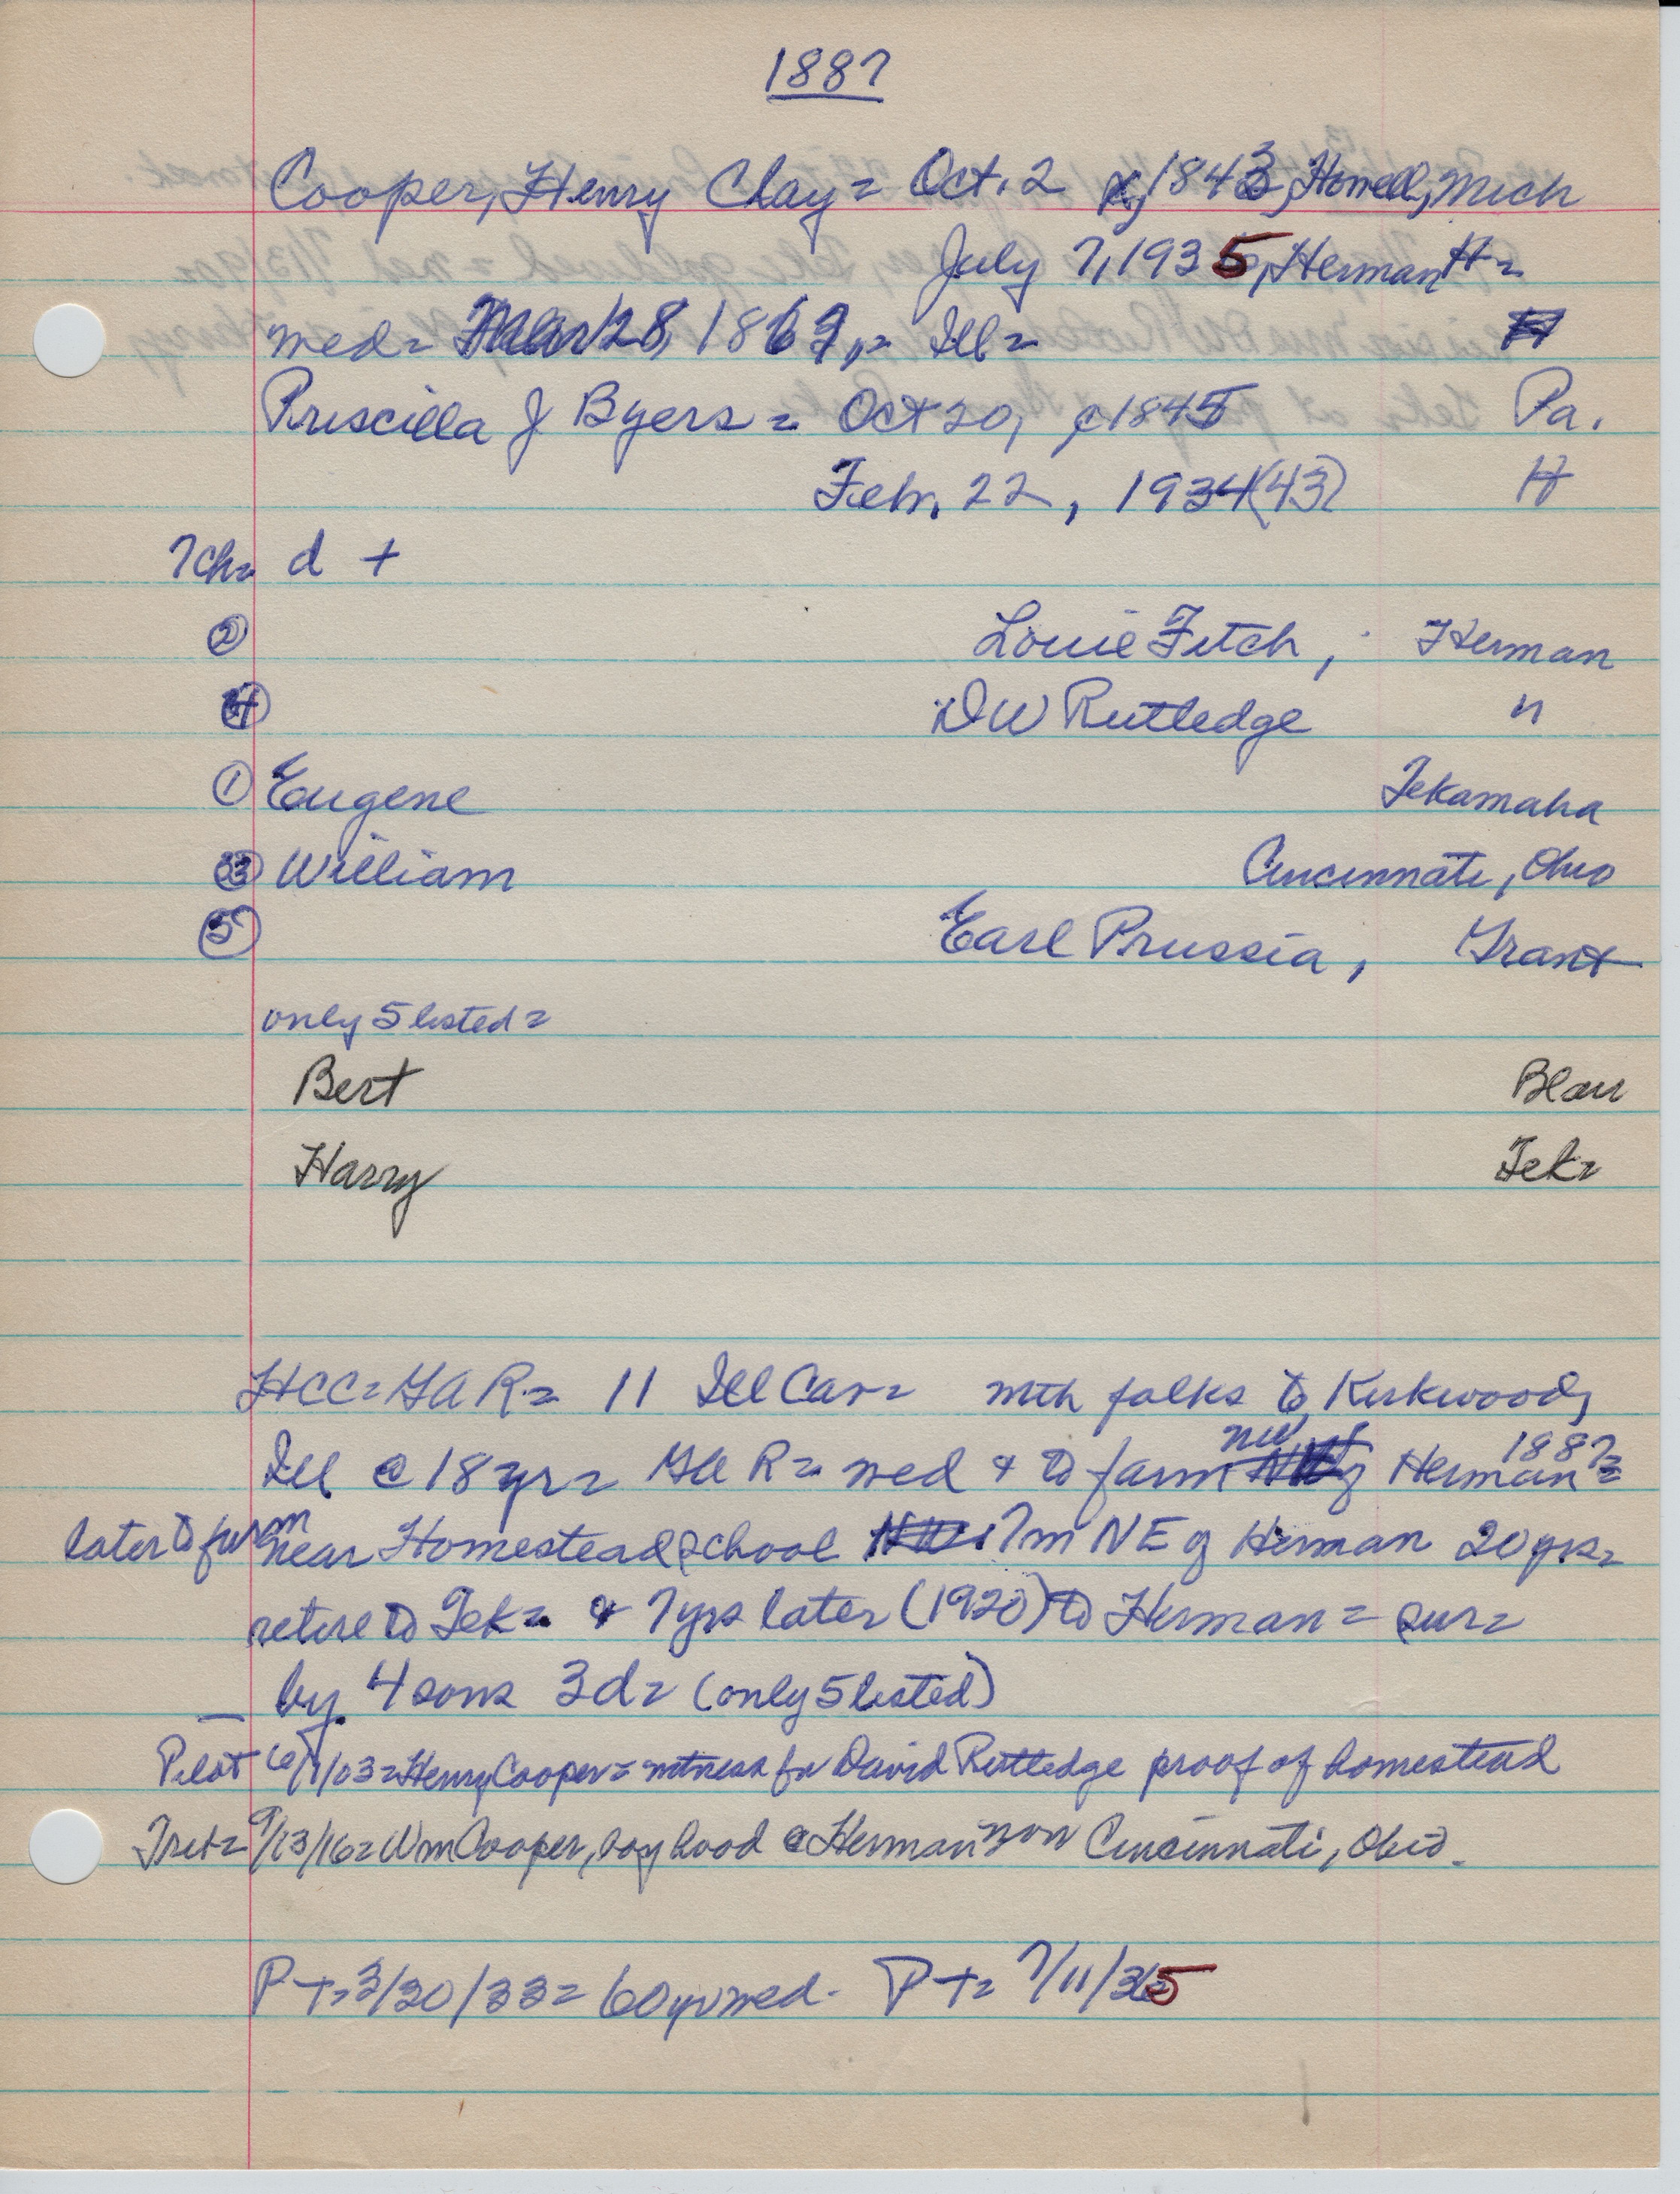 1887
Cooper, Henry Clay = Oct. 2, 1843, Howell, Mich
July 7, 1935, Herman H =
med = Mar 28, 1869, = Ill =
Priscilla J Byers = Oct 20, 1845 Pa.
Feb. 22, 1934 (43) H
7 ch = d +
② Louie Fitch, Herman
④ DW Rutledge "
① Eugene Tekamaha
③ William Cincinnati, Ohio
⑤ Earl Prussia, Grant
only 5 listed =
Bert Blair
Harry Tek =
HCC = GAR = 11 Ill Cav = wth folks to Kirkwood,
Ill @ 18 yr = GAR = med & to farm NW of Herman 1887 =
later to farm near Homestead School 7m NE of Herman 20 yrs =
retire to Tek = & 7 yrs later (1920) to Herman = sur =
by 4 sons 3d = (only 5 listed)
Pilot 6/ /03 = Henry Cooper = witness for David Rutledge proof of homestead
9/13/16 = Wm Cooper, boyhood @ Herman now Cincinnati, Ohio.
PT = 3/30/33 = 60 yr med. PT = 7/11/35